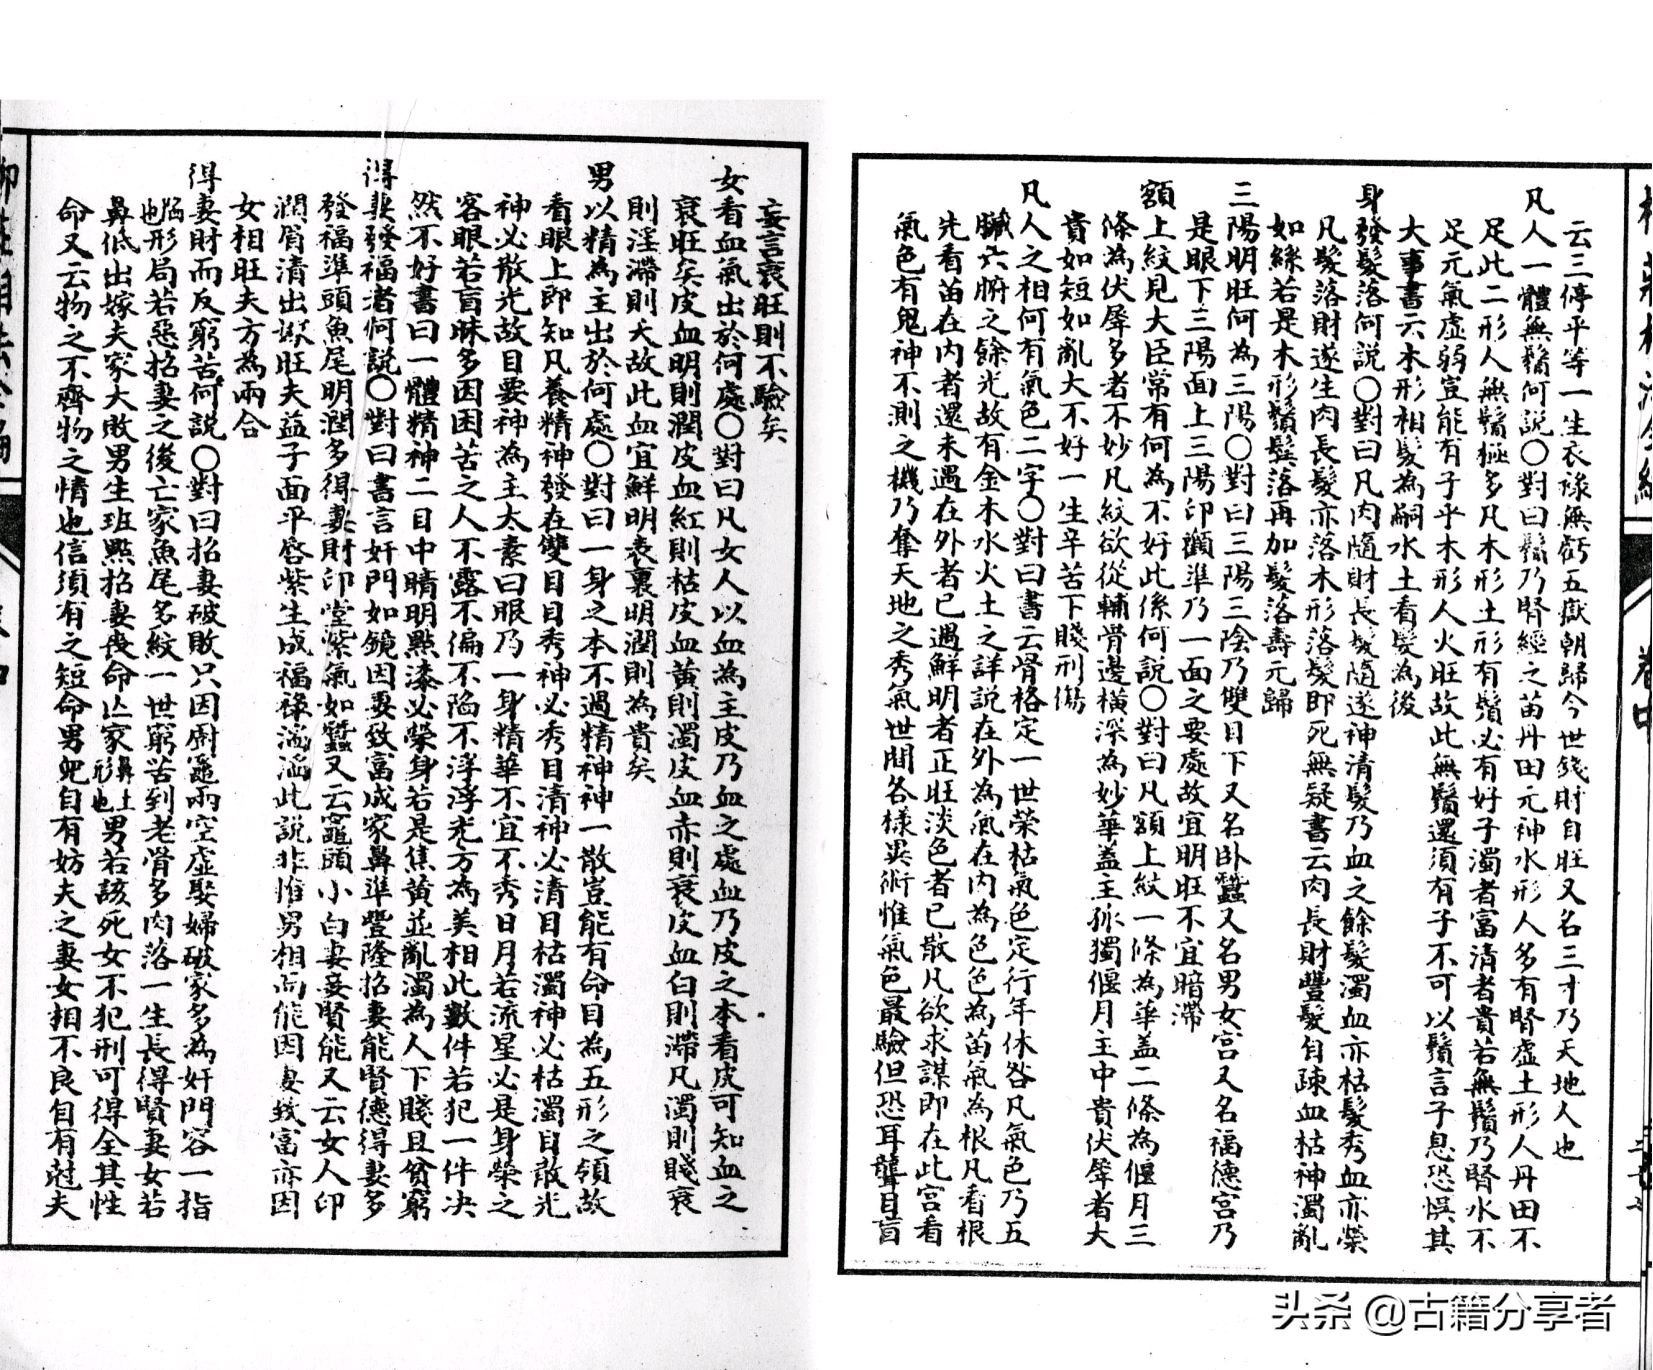 云三停平等一生衣祿無虧五嶽朝歸今世錢財自旺又名三才乃天地人也
凡人一體無鬚何説○對曰鬚乃腎經之苗丹田元神水形人多有腎虛土形人丹田不
足此二形人無鬚極多凡木形土形有鬚必有好子濁者富清者貴若無鬚乃腎水不
足元氣虛弱豈能有子乎木形人火旺故此無鬚還須有子不可以鬚言子息恐悞其
大事書云木形相髮為嗣水土看髮為後
身發髮落何説○對曰凡肉隨財長髮隨遂神清髮乃血之餘髮濁血亦枯髮秀血亦榮
凡髮落財遂生肉長髮亦落木形落髮即死無疑書云肉長財豐髮自疎血枯神濁亂
如絲若是木形鬚鬓落再加髮落壽元歸
三陽明旺何為三陽○對曰三陽三陰乃雙目下又名卧蠶又名男女宮又名福德宮乃
是眼下三陽面上三陽印顴準乃一面之要處故宜明旺不宜暗滯
額上紋見大臣常有何為不好此係何説○對曰凡額上紋一條為華盖二條為偃月三
條為伏犀多者不妙凡紋欲從輔骨邊橫深為妙華盖主孤獨偃月主中貴伏犀者大
貴如短如亂大不好一生辛苦下賤刑傷
凡人之相何有氣色二字○對曰書云骨格定一世榮枯氣色定行年休咎凡氣色乃五
臟六腑之餘光故有金木水火土之詳説在外為氣在内為色色為苗氣為根凡看根
先看苗在内者還未遇在外者已遇鮮明者正旺淡色者已散凡欲求謀即在此宮看
氣色有鬼神不測之機乃奪天地之秀氣世間各樣異術惟氣色最驗但恐耳聾目盲
妄言衰旺則不驗矣
女看血氣出於何處○對曰凡女人以血為主皮乃血之處血乃皮之本看皮可知血之
衰旺矣皮血明則潤皮血紅則枯皮血黄則濁皮血赤則衰皮血白則滯凡濁則賤衰
則淫滯則夭故此血宜鮮明表裏明潤則為貴矣
男以精為主出於何處○對曰一身之本不過精神神一散豈能有命目為五形之領故
看眼上即知凡養精神發在雙目目秀神必秀目清神必清目枯濁神必枯濁目散光
神必散光故目要神為主太素曰眼乃一身精華不宜不秀日月若流星必是身榮之
客眼若盲昧多因困苦之人不露不偏不陷不浮浮光方為美相此數件若犯一件决
然不好書曰一體精神二目中睛明點漆必榮身若是焦黄並亂濁為人下賤且貧窮
得妻發福者何説○對曰書言奸門如鏡因妻致富成家鼻準豐隆招妻能賢德得妻多
發福準頭魚尾明潤多得妻財印堂紫氣如蠶又云竈頭小白妻妾賢能又云女人印
潤眉清出嫁旺夫益子面平唇紫生成福祿滔滔此説非惟男相而能因妻致富亦因
女相旺夫方為兩合
得妻財而反窮苦何説○對曰招妻破敗只因厨竈兩空虛娶婦破家多為奸門容一指
也形局若惡招妻之後亡家魚尾多紋一世窮苦到老骨多肉落一生長得賢妻女若
鼻低出嫁夫家大敗男生班點招妻喪命亡家鼻上形也男若該死女不犯刑可得全其性
命又云物之不齊物之情也信須有之短命男兒自有妨夫之妻女相不良自有尅夫
頭条 @古籍分享者